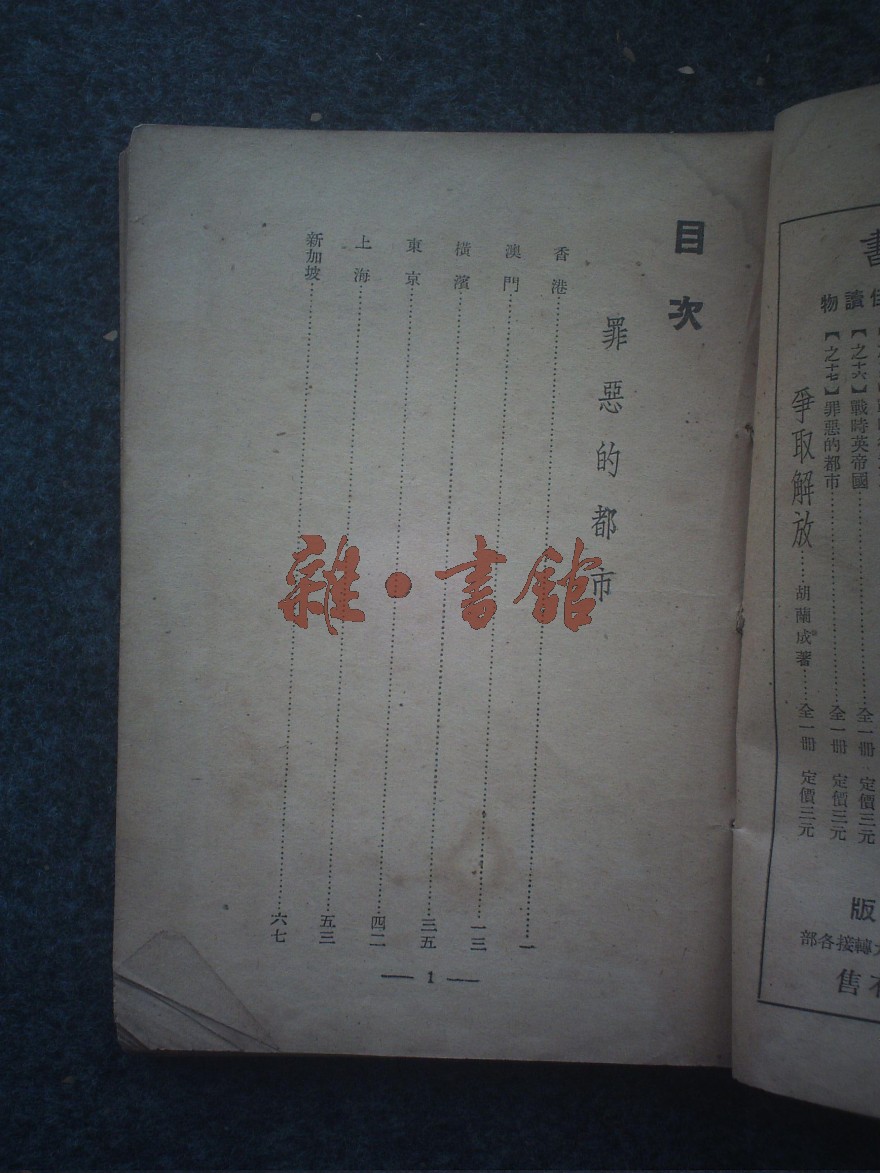 目次
罪惡的都市
香港……一
澳門……一三
橫濱……三五
東京……四二
上海……五三
新加坡……六七
— 1 —
雜·書館
書
佳讀物
【之十六】戰時英帝國……全一冊 定價三元
【之十七】罪惡的都市……全一冊 定價三元
爭取解放……胡蘭成著……全一冊 定價三元
版
轉接各部
售